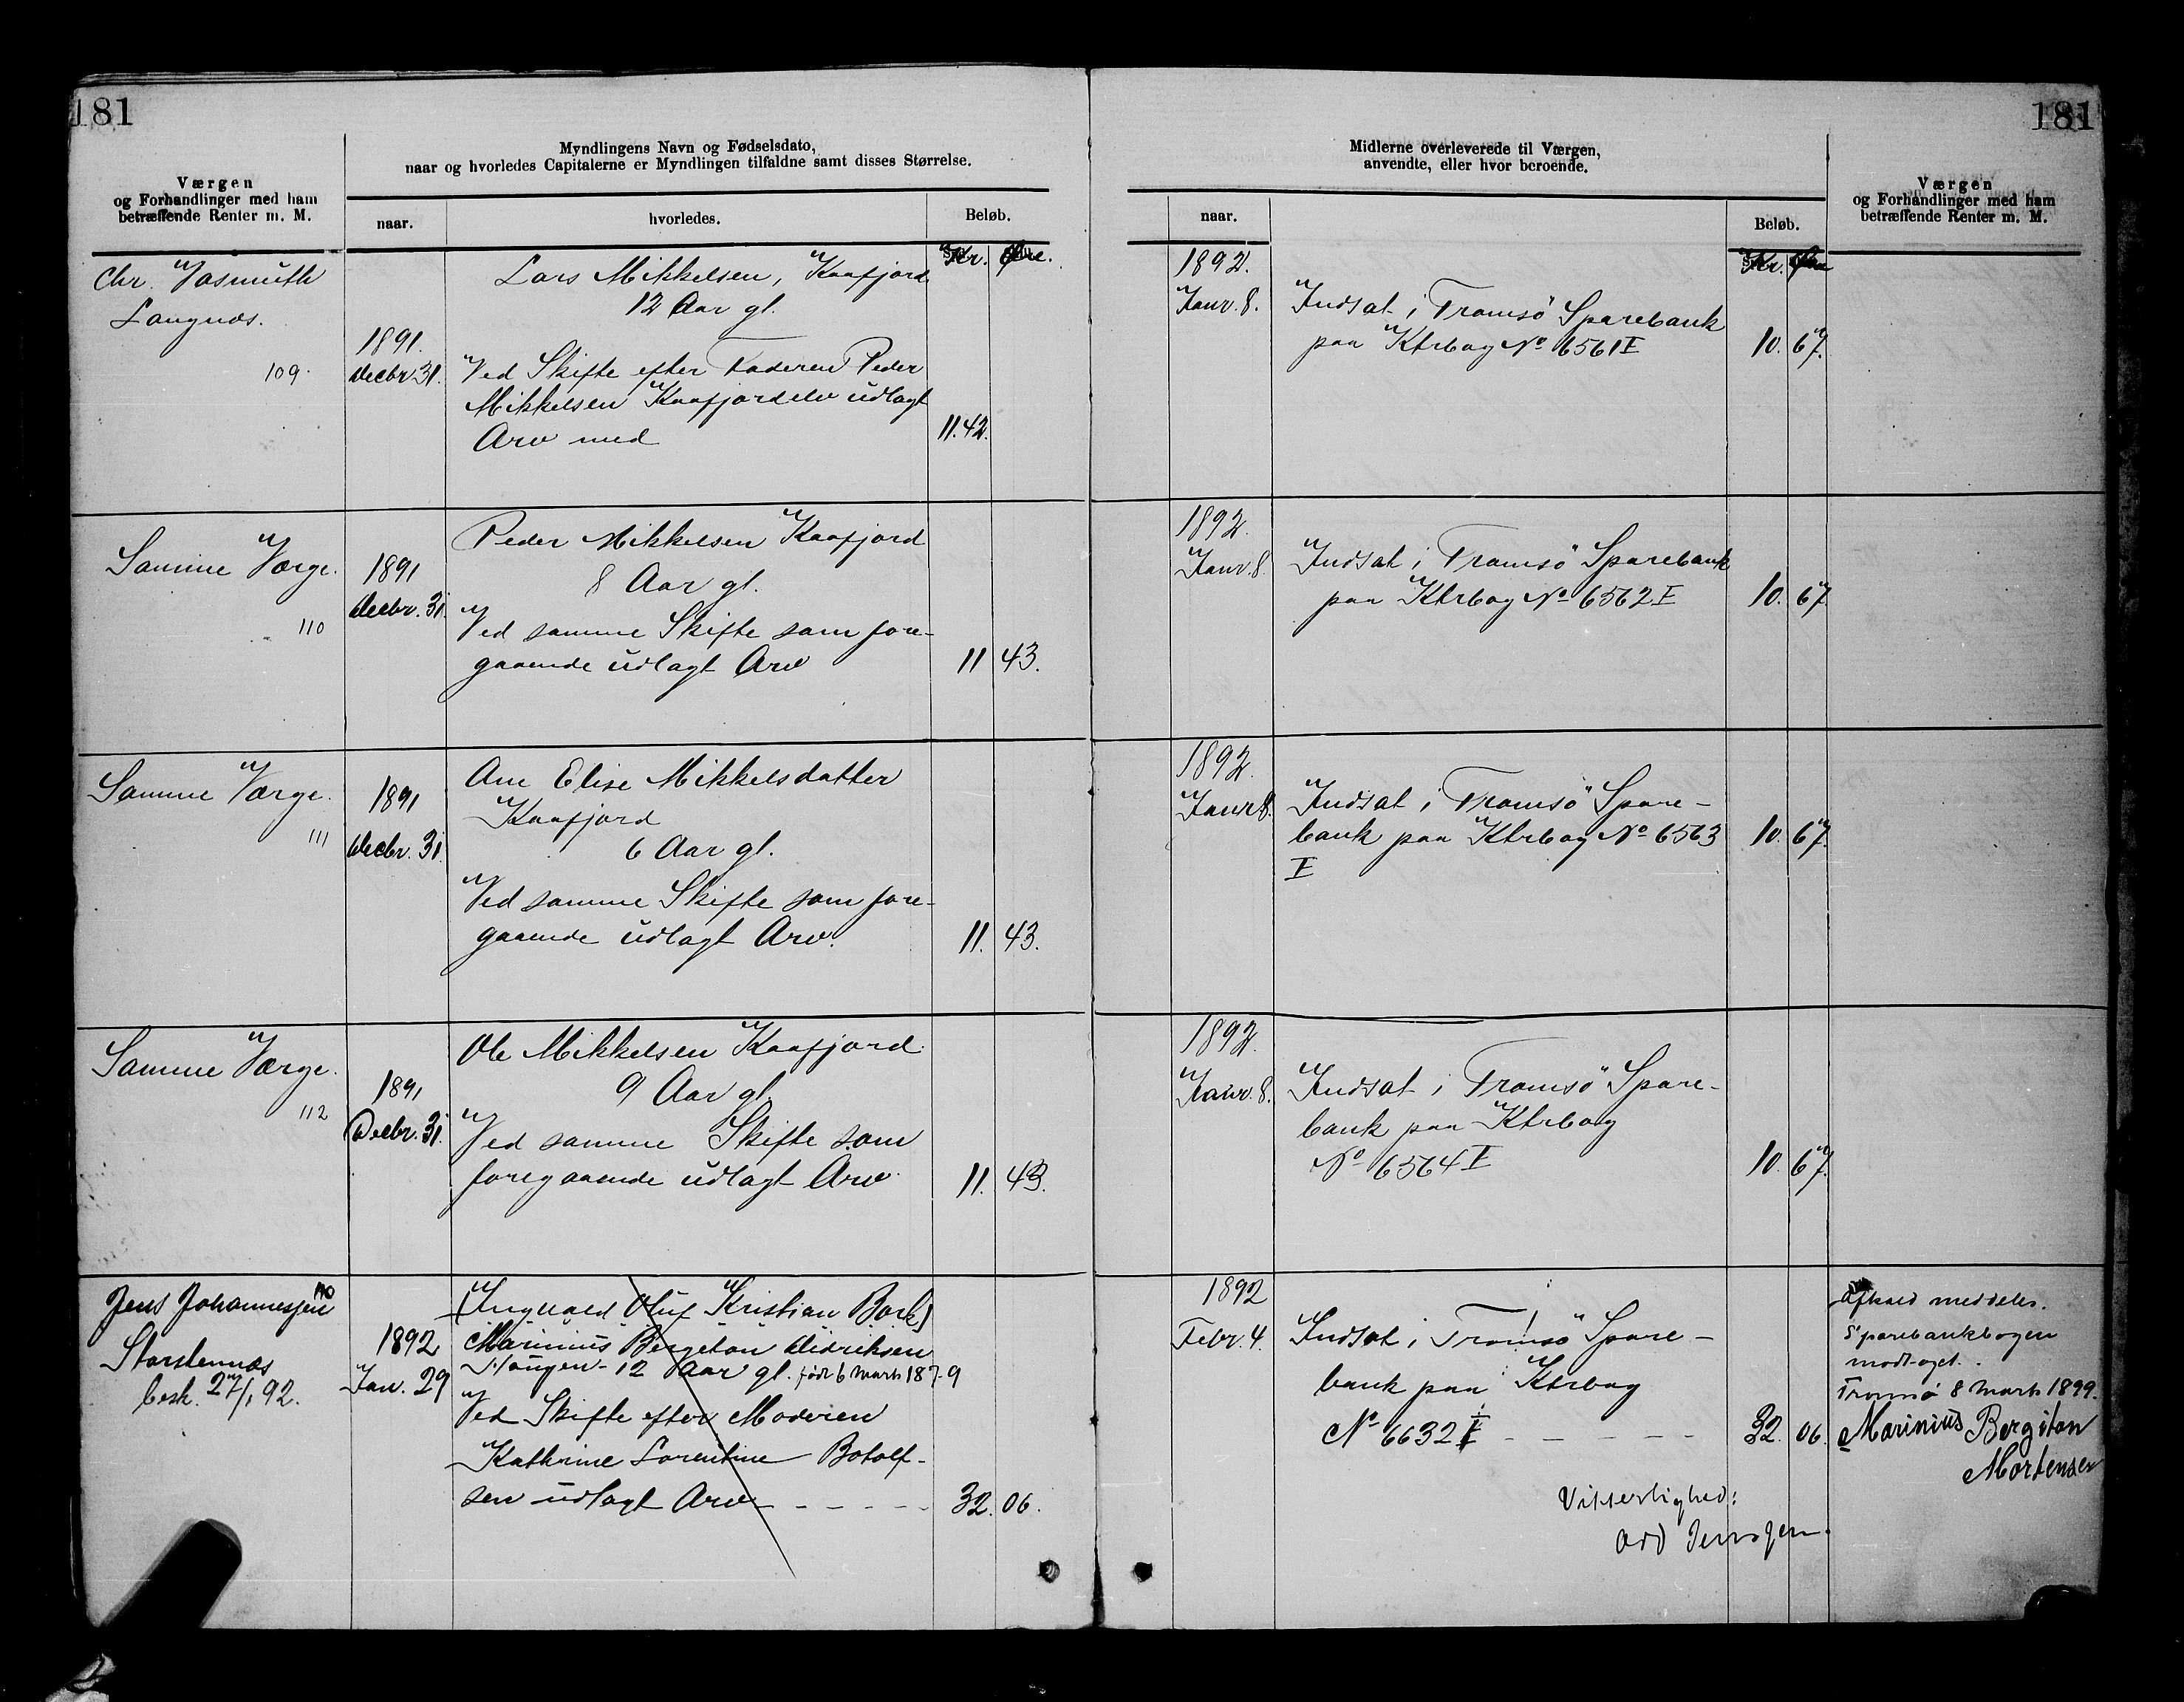 181
Værgen
og Forhandlinger med ham
betræffende Renter m. M.
Myndlingens Navn og Fødselsdato,
naar og hvorledes Capitalerne er Myndlingen tilfaldne samt disses Størrelse.
naar.
hvorledes.
Beløb.
Kr. Øre.
Chr. Vasmuth
Langnæs.
109.
1891.
Decbr. 31.
Lars Mikkelsen, Kaafjord
12 Aar gl.
Ved Skifte efter Faderen Peder
Mikkelsen Kaafjordelv udlagt
Arv med 11. 42.
Samme Værge.
110
1891
Decbr. 31.
Peder Mikkelsen Kaafjord
8 Aar gl.
Ved samme Skifte som fore-
gaaende udlagt Arv 11 43.
Samme Værge.
111
1891
Decbr. 31.
Ane Elise Mikkelsdatter
Kaafjord
6 Aar gl.
Ved samme Skifte som fore-
gaaende udlagt Arv. 11. 43.
Samme Værge.
112
1891
Decbr. 31.
Ole Mikkelsen Kaafjord.
9 Aar gl.
Ved samme Skifte som
foregaaende udlagt Arv. 11. 43.
Jens Johannessen
Storstennæs
besk. 27/1 92.
1892
Jan. 29
(Ingvald Oluf Kristian Bark)
Marinius Bergeton Didriksen
Haugen - 12 Aar gl. født 6 Marts 1879
Ved Skifte efter Moderen
Kathrine Lorentine Botolf-
sen udlagt Arv - - - - - 32. 06.
181
Midlerne overleverede til Værgen,
anvendte, eller hvor beroende.
naar.
Beløb.
Værgen
og Forhandlinger med ham
betræffende Renter m. M.
Kr.
1892.
Janr. 8.
Indsat i Tromsö Sparebank
paa Ktrbog No 6561 I 10. 67.
1892.
Janr. 8.
Indsat i Tromsö Sparebank
paa Ktrbog No 6562 I 10. 67
1892.
Janr. 8.
Indsat i Tromsö Spare-
bank paa Ktrbog No 6563 10. 67.
I
1892.
Janr. 8.
Indsat i Tromsö Spare-
bank paa Ktrbog
No 6564 I 10. 67.
1892
Febr. 4.
Indsat i Tromsö Spare-
bank paa Ktrbog
No 6632 I - - - - - 32. 06.
Vitterlighed:
Afkald meddeles.
Sparebankbogen
modtaget.
Tromsö 8 Marts 1899.
Marinius Bergiton
Mortensen